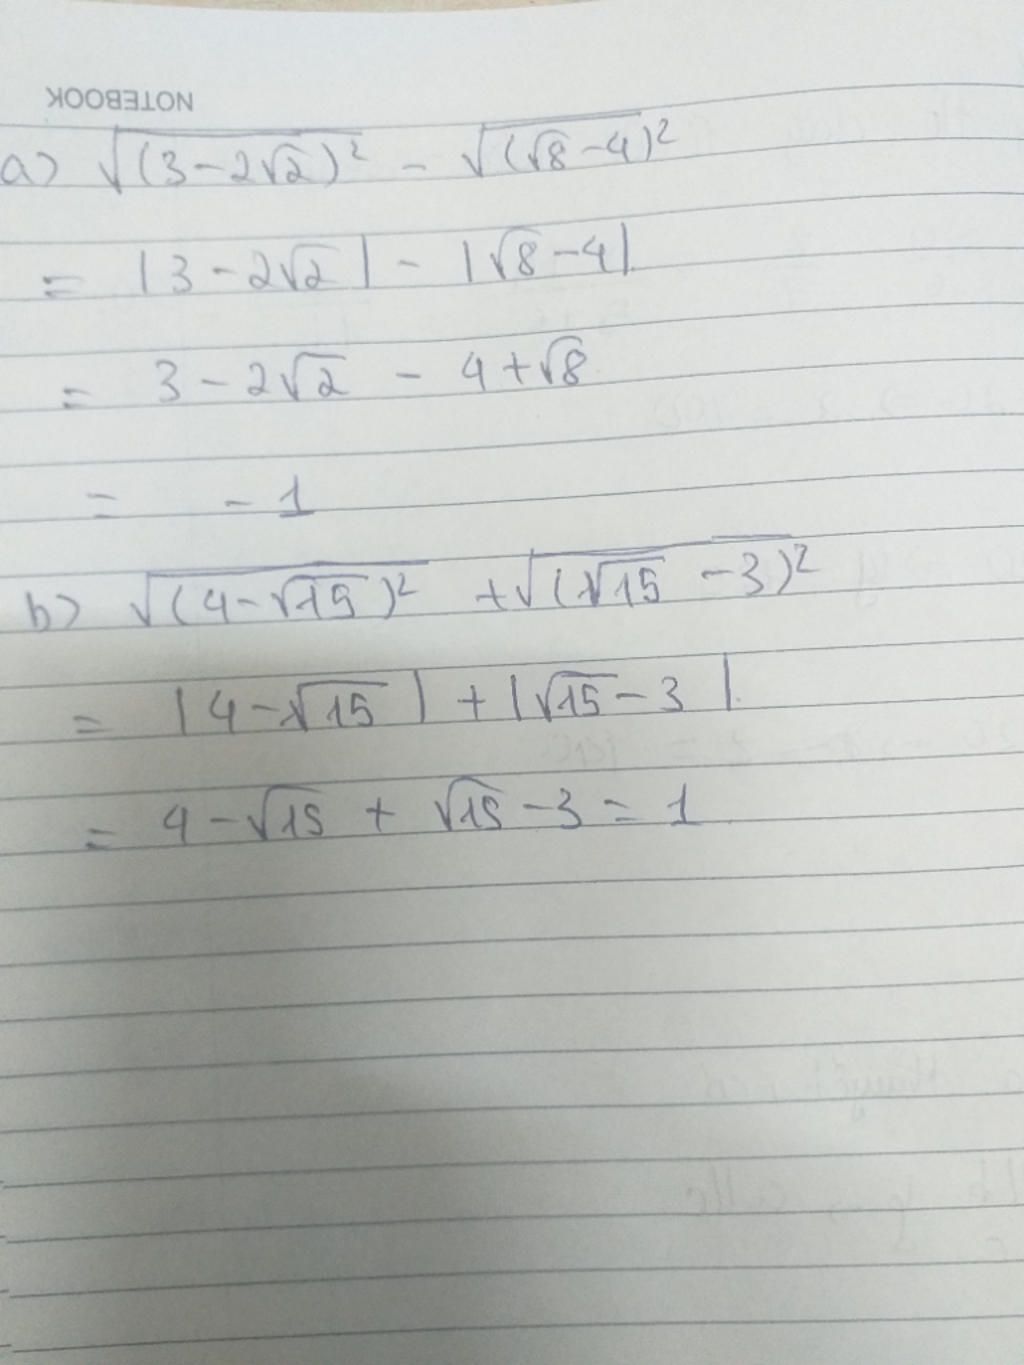 NOTEBOOK
a) √(3-2√2)² - √(√8-4)²
= |3-2√2| - |√8-4|.
= 3-2√2 - 4+√8
= -1
b) √(4-√15)² + √(√15-3)²
= |4-√15| + |√15-3|.
= 4-√15 + √15-3 = 1